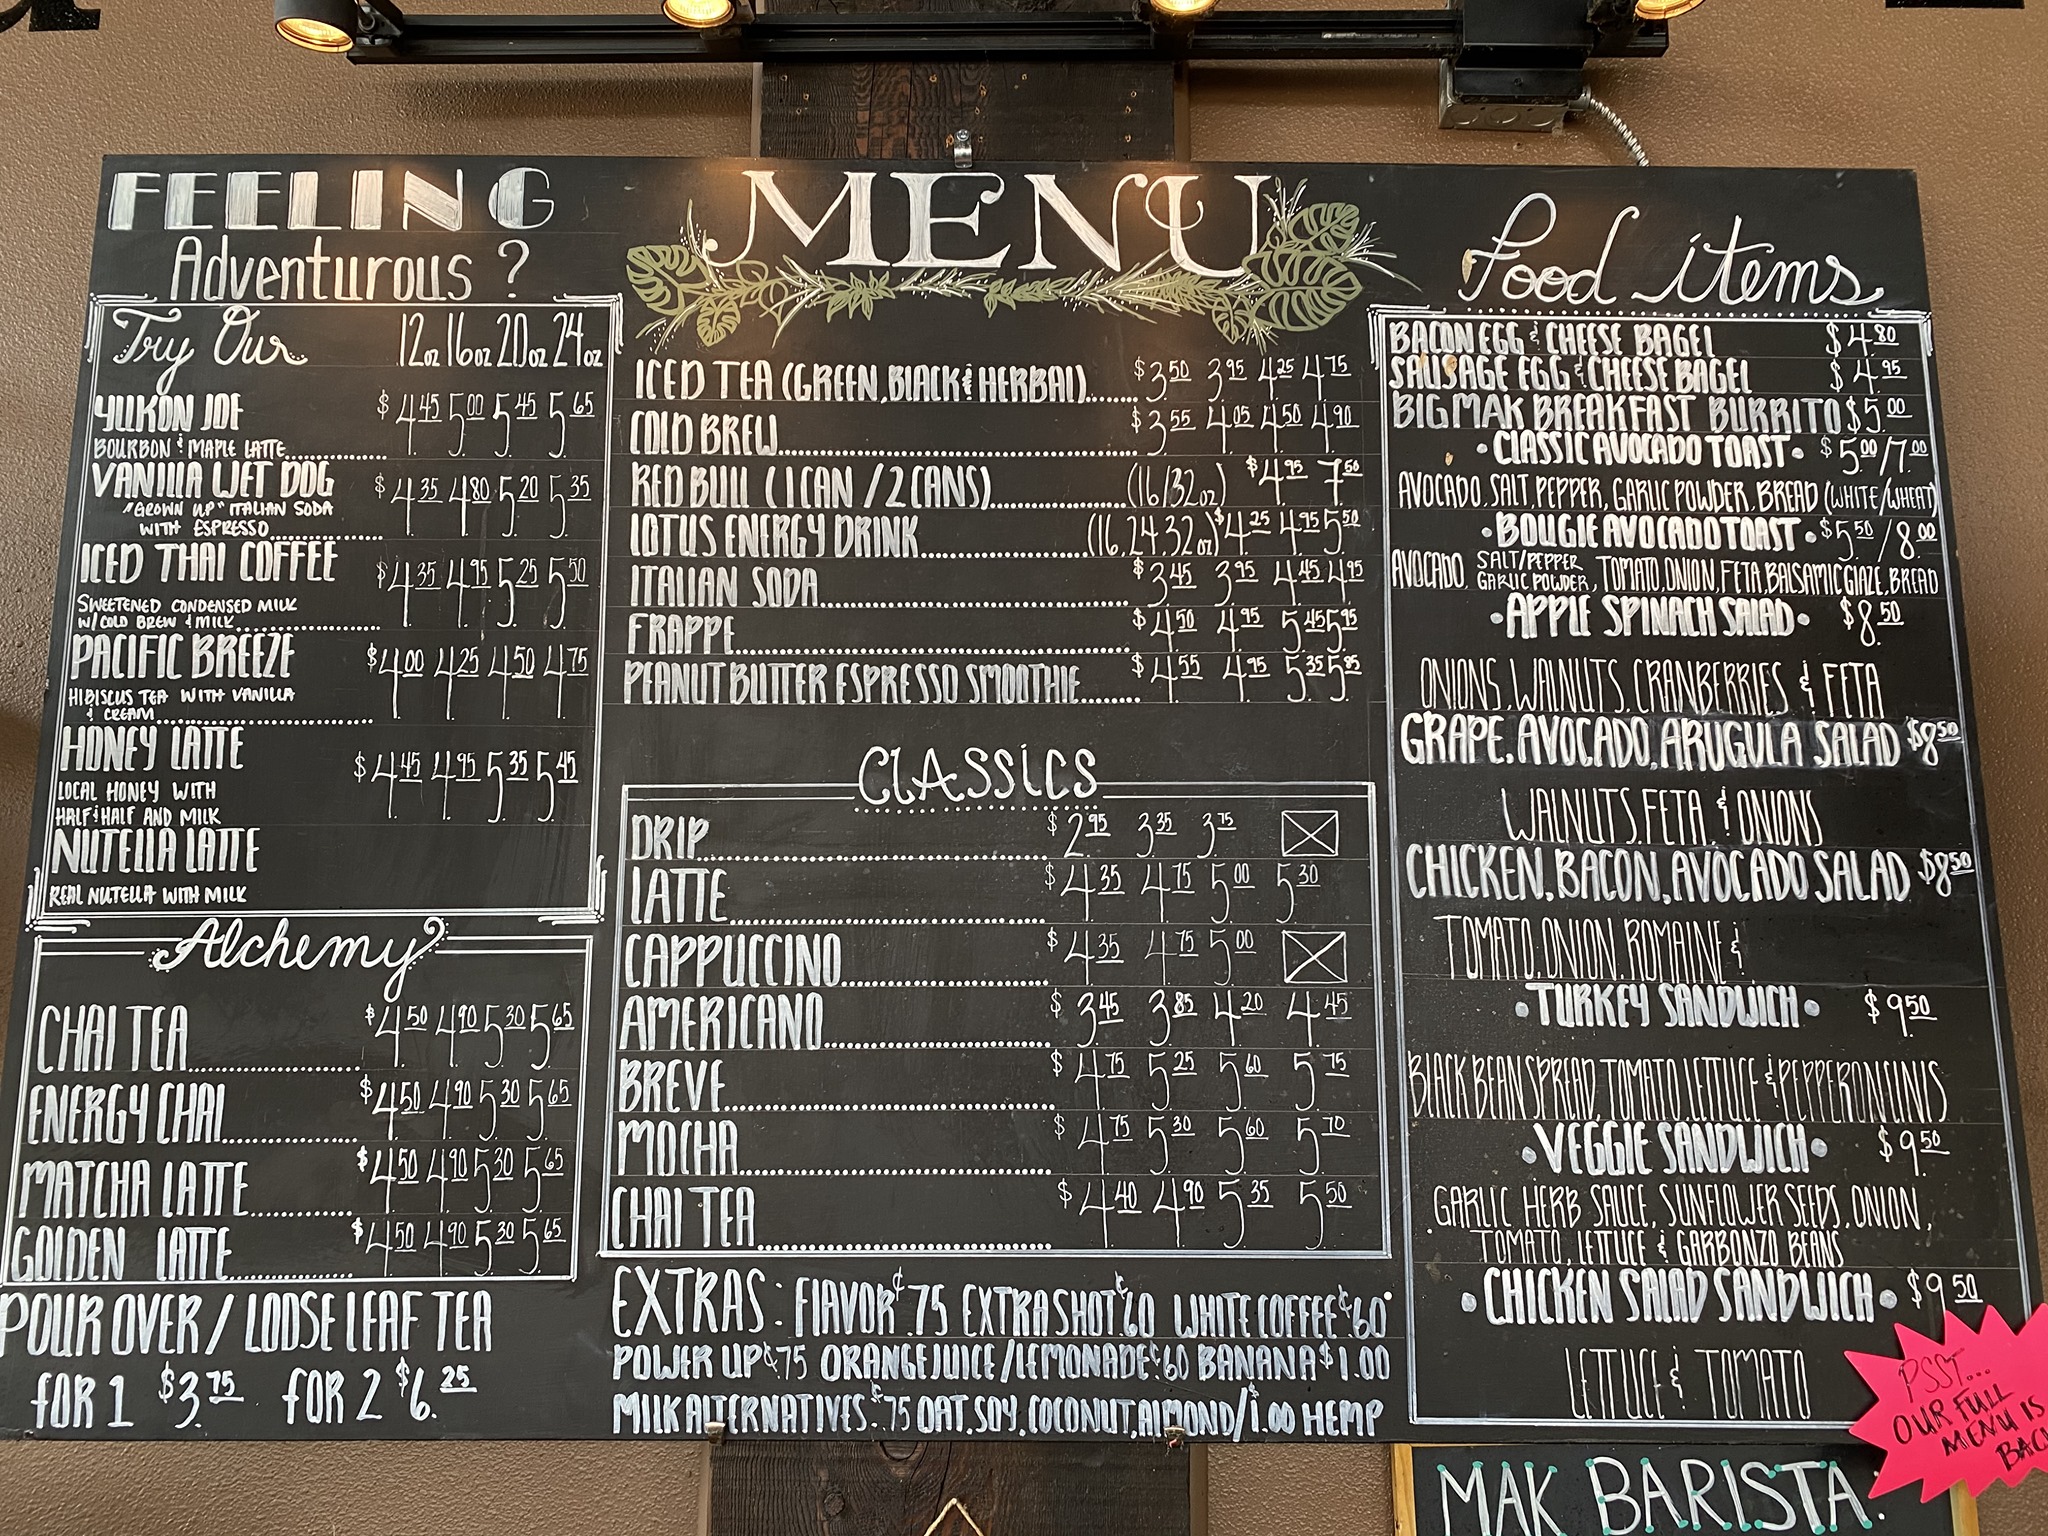 FEELING
Adventurous?
Try Our 12oz 16oz 20oz 24oz
YUKON JOE $4.45 5.00 5.45 5.65
BOURBON & MAPLE LATTE
VANILLA WET DOG $4.35 4.80 5.20 5.35
"GROWN UP" ITALIAN SODA
WITH ESPRESSO
ICED THAI COFFEE $4.35 4.95 5.25 5.50
SWEETENED CONDENSED MILK
W/COLD BREW & MILK
PACIFIC BREEZE $4.00 4.25 4.50 4.75
HIBISCUS TEA WITH VANILLA
& CREAM
HONEY LATTE $4.45 4.95 5.35 5.45
LOCAL HONEY WITH
HALF & HALF AND MILK
NUTELLA LATTE
REAL NUTELLA WITH MILK
Alchemy
CHAI TEA $4.50 4.90 5.30 5.65
ENERGY CHAI $4.50 4.90 5.30 5.65
MATCHA LATTE $4.50 4.90 5.30 5.65
GOLDEN LATTE $4.50 4.90 5.30 5.65
POUR OVER / LOOSE LEAF TEA
FOR 1 $3.75 FOR 2 $6.25
MENU
ICED TEA (GREEN, BLACK & HERBAL) $3.50 3.95 4.25 4.75
COLD BREW $3.55 4.05 4.50 4.90
RED BULL (1 CAN / 2 CANS) (16/32oz) $4.95 7.50
LOTUS ENERGY DRINK (16,24,32oz) $4.25 4.95 5.50
ITALIAN SODA $3.45 3.95 4.45 4.95
FRAPPE $4.50 4.95 5.45 5.95
PEANUT BUTTER ESPRESSO SMOOTHIE $4.55 4.95 5.35 5.85
CLASSICS
DRIP $2.95 3.35 3.75
LATTE $4.35 4.75 5.00 5.30
CAPPUCCINO $4.35 4.75 5.00
AMERICANO $3.45 3.85 4.20 4.45
BREVE $4.75 5.25 5.60 5.75
MOCHA $4.75 5.30 5.60 5.70
CHAI TEA $4.40 4.90 5.35 5.50
EXTRAS: FLAVOR ¢.75 EXTRA SHOT ¢.60 WHITE COFFEE ¢.60
POWER UP ¢.75 ORANGE JUICE/LEMONADE ¢.60 BANANA $1.00
MILK ALTERNATIVES ¢.75 OAT, SOY, COCONUT, ALMOND/$1.00 HEMP
Food items
BACON EGG & CHEESE BAGEL $4.80
SAUSAGE EGG & CHEESE BAGEL $4.95
BIG MAK BREAKFAST BURRITO $5.00
• CLASSIC AVOCADO TOAST • $5.00/7.00
AVOCADO, SALT, PEPPER, GARLIC POWDER, BREAD (WHITE/WHEAT)
• BOUGIE AVOCADO TOAST • $5.50/8.00
AVOCADO, SALT/PEPPER GARLIC POWDER, TOMATO, ONION, FETA, BALSAMIC GLAZE, BREAD
• APPLE SPINACH SALAD • $8.50
ONIONS, WALNUTS, CRANBERRIES & FETA
GRAPE, AVOCADO, ARUGULA SALAD $8.50
WALNUTS, FETA, & ONIONS
CHICKEN, BACON, AVOCADO SALAD $8.50
TOMATO, ONION, ROMAINE &
• TURKEY SANDWICH • $9.50
BLACK BEAN SPREAD, TOMATO, LETTUCE & PEPPERONCINIS
• VEGGIE SANDWICH • $9.50
GARLIC HERB SAUCE, SUNFLOWER SEEDS, ONION,
TOMATO, LETTUCE & GARBONZO BEANS
• CHICKEN SALAD SANDWICH • $9.50
LETTUCE & TOMATO
PSST...
OUR FULL
MENU IS
MAK BARISTA: